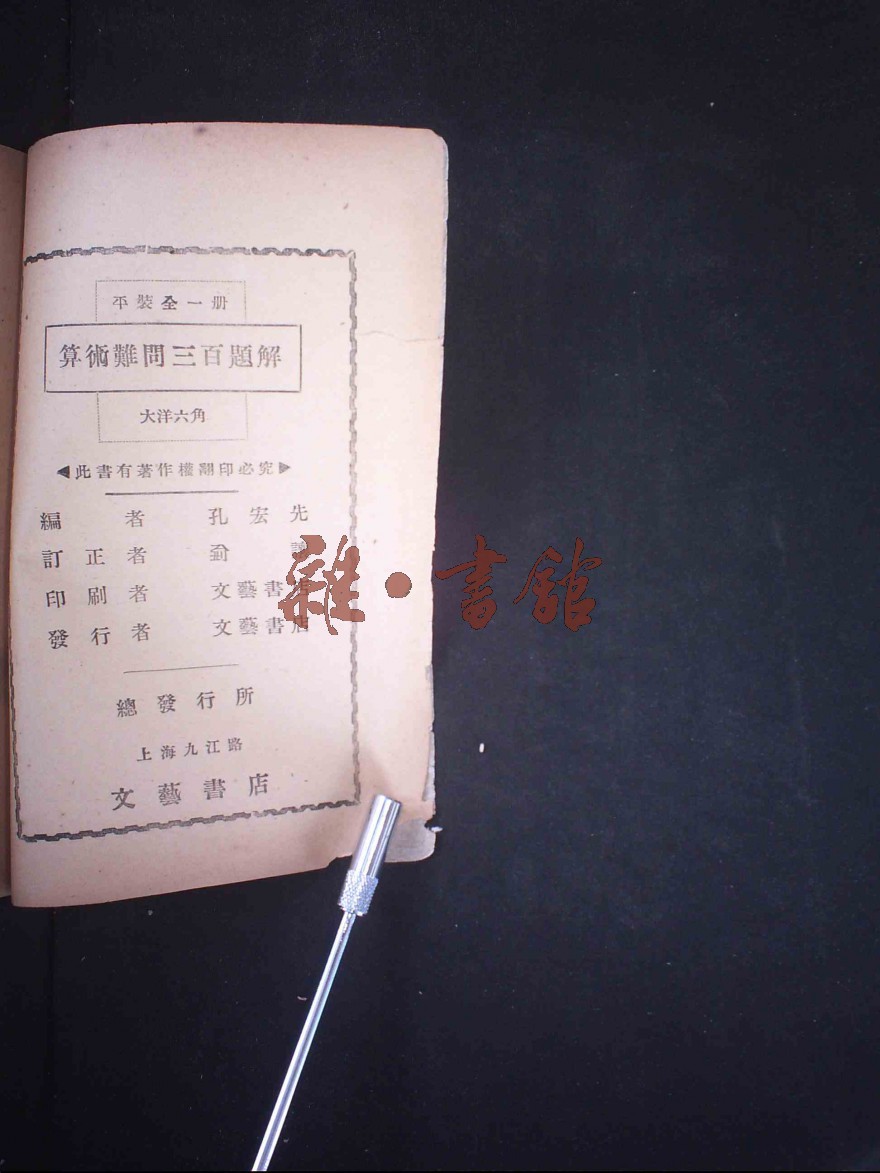 平裝全一册
算術難問三百題解
大洋六角
◀此書有著作權翻印必究▶
編者 孔宏先
訂正者
印刷者 文藝書店
發行者 文藝書店
總發行所
上海九江路
文藝書店
雜·書館